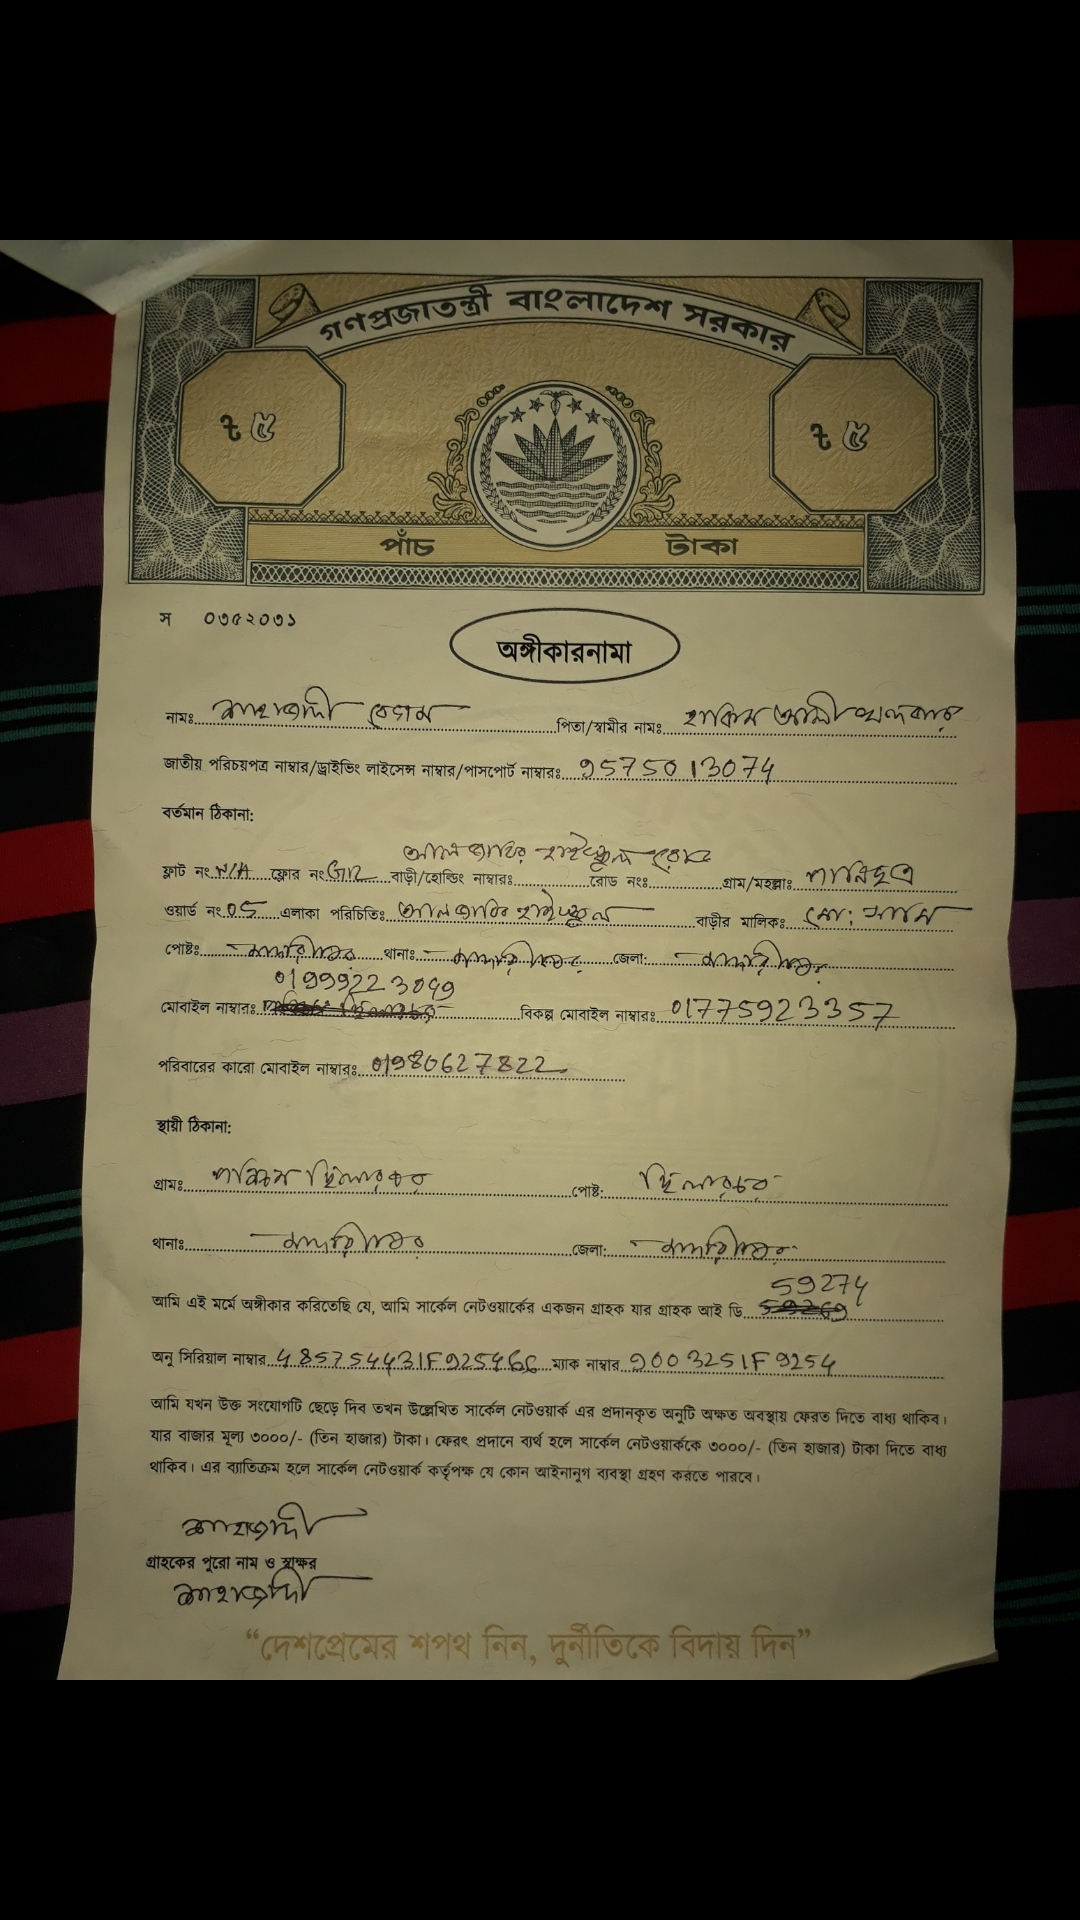 গণপ্রজাতন্ত্রী বাংলাদেশ সরকার
৳ ৫ ৳ ৫
পাঁচ টাকা
স ০৩৫২০৩১
অঙ্গীকারনামা
নামঃ শাহাজাদী বেগম পিতা/স্বামীর নামঃ হাকিম আলী খন্দকার
জাতীয় পরিচয়পত্র নাম্বার/ড্রাইভিং লাইসেন্স নাম্বার/পাসপোর্ট নাম্বারঃ 9575013074
বর্তমান ঠিকানা:
হাইস্কুল রোড
ফ্লাট নং N/A ফ্লোর নং বাড়ী/হোল্ডিং নাম্বারঃ রোড নংঃ গ্রাম/মহল্লাঃ পানিছত্র
ওয়ার্ড নং 05 এলাকা পরিচিতিঃ হাইস্কুল বাড়ীর মালিকঃ মো:
পোষ্টঃ মাদারীপুর থানাঃ মাদারীপুর জেলা: মাদারীপুর
01999223049
মোবাইল নাম্বারঃ বিকল্প মোবাইল নাম্বারঃ 01775923357
পরিবারের কারো মোবাইল নাম্বারঃ 01980627822
স্থায়ী ঠিকানা:
গ্রামঃ পশ্চিম ছিলারচর পোষ্ট: ছিলারচর
থানাঃ মাদারীপুর জেলা: মাদারীপুর
59274
আমি এই মর্মে অঙ্গীকার করিতেছি যে, আমি সার্কেল নেটওয়ার্কের একজন গ্রাহক যার গ্রাহক আই ডি
অনু সিরিয়াল নাম্বার 485754431F925466 ম্যাক নাম্বার 9003251F9254
আমি যখন উক্ত সংযোগটি ছেড়ে দিব তখন উল্লেখিত সার্কেল নেটওয়ার্ক এর প্রদানকৃত অনুটি অক্ষত অবস্থায় ফেরত দিতে বাধ্য থাকিব।
যার বাজার মূল্য ৩০০০/- (তিন হাজার) টাকা। ফেরৎ প্রদানে ব্যর্থ হলে সার্কেল নেটওয়ার্ককে ৩০০০/- (তিন হাজার) টাকা দিতে বাধ্য
থাকিব। এর ব্যাতিক্রম হলে সার্কেল নেটওয়ার্ক কর্তৃপক্ষ যে কোন আইনানুগ ব্যবস্থা গ্রহণ করতে পারবে।
শাহাজাদী
গ্রাহকের পুরো নাম ও স্বাক্ষর
শাহাজাদী
“দেশপ্রেমের শপথ নিন, দুর্নীতিকে বিদায় দিন”